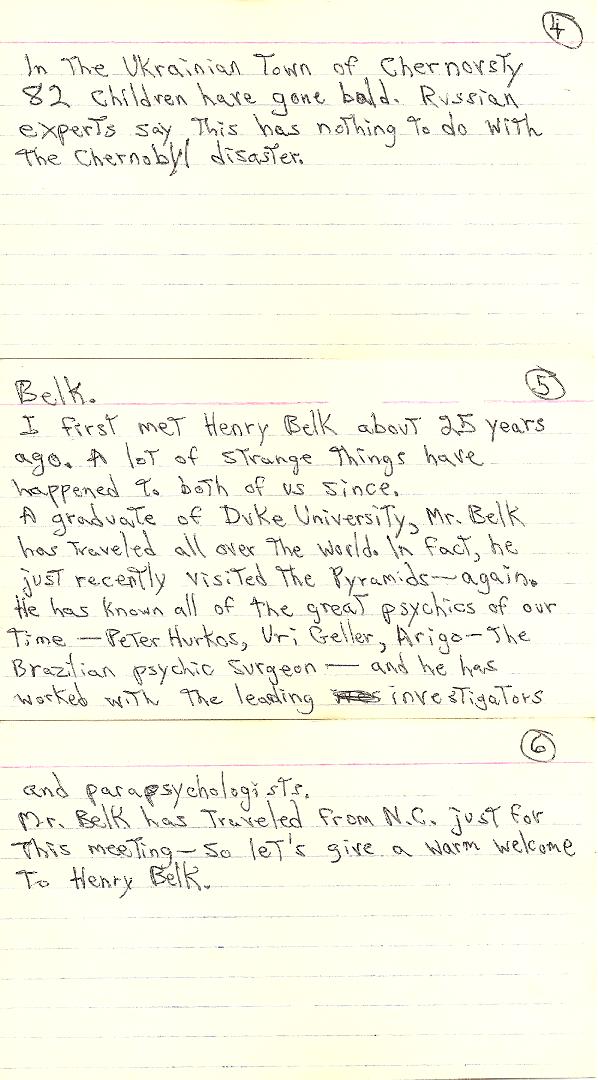 4
In The Ukrainian Town of Chernovsty
82 children have gone bald. Russian
experts say This has nothing To do with
the Chernobyl disaster.
5
Belk.
I first met Henry Belk about 25 years
ago. A lot of strange Things have
happened To both of us since.
A graduate of Duke University, Mr. Belk
has Traveled all over The world. In fact, he
just recently visited The Pyramids—again.
He has known all of the great psychics of our
Time — Peter Hurkos, Uri Geller, Arigo — The
Brazilian psychic surgeon — and he has
worked with The leading investigators
6
and parapsychologists.
Mr. Belk has Traveled from N.C. just for
This meeting — So let's give a warm welcome
To Henry Belk.